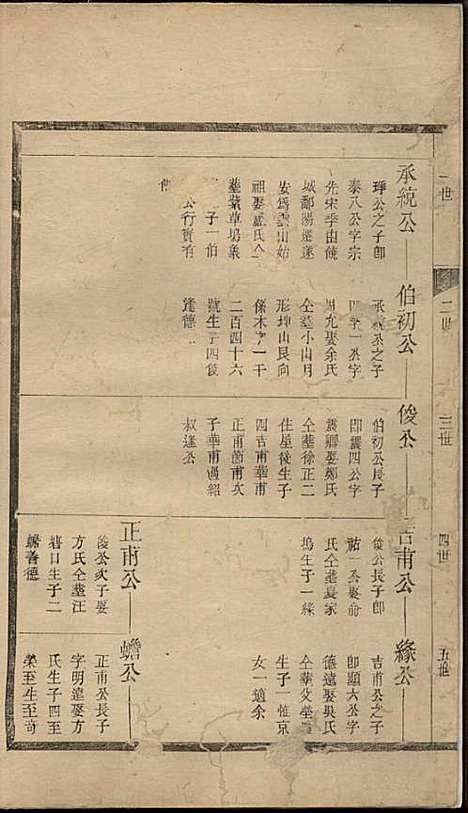 一世
二世
三世
四世
五世
承統公
琈公之子卽
泰八公字宗
先宋季由饒
城鄱陽遷遂
安爲雲山始
祖娶盧氏仝
墓葉草塢象
子一伯
公行實有
伯初公
承統公之子
一公字
允娶余氏
仝墓小山月
形坤山艮向
係木字一千
二百四十六
號生子四俊
逢德
俊公
伯初公長子
卽震四公字
震卿娶鄭氏
仝墓徐正二
住屋後生子
四吉甫華甫
正甫簡甫次
子華甫過紹
叔逢公
吉甫公
俊公長子卽
祐一公娶俞
氏仝墓夏家
塢生子一緣
緣公
吉甫公之子
卽顯六公字
德遠娶吳氏
仝葬父塋
生子一惟京
女一適余
正甫公
俊公次子娶
方氏仝墓汪
塘口生子二
蟾善德
蟾公
正甫公長子
字明遠娶方
氏生子四至
榮至生至奇